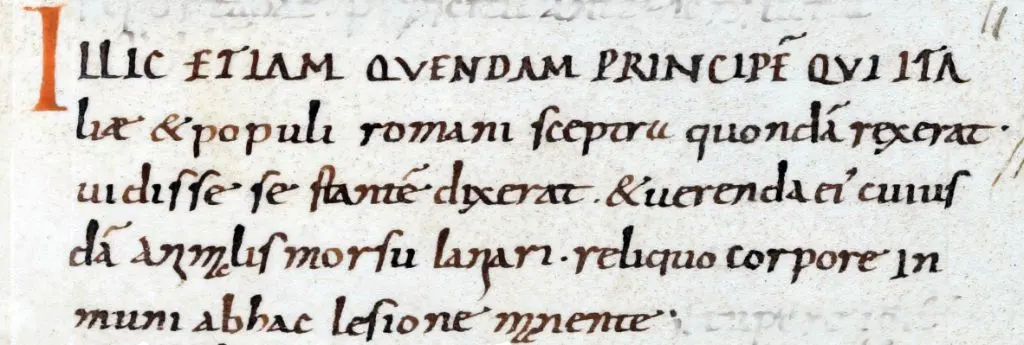 ILLIC ETIAM QVENDAM PRINCIPĒ QVI ITA
liæ & populi romani sceptra quondā rexerat·
uidisse se stantē dixerat. & uerenda ei' cuius
dā animalis morsu laniari· reliquo corpore in
muni ab hac lesione manente·